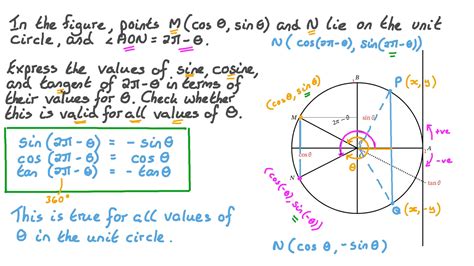 In the figure, points M (cos θ, sin θ) and N lie on the unit
circle, and ∠AON = 2π - θ.
N (cos(2π-θ), sin(2π-θ))
Express the values of sine, cosine,
and tangent of 2π - θ in terms of
their values for θ. Check whether
this is valid for all values of θ.
sin (2π - θ) = - sin θ
cos (2π - θ) = cos θ
tan (2π - θ) = - tan θ
360°
This is true for all values of
θ in the unit circle.
B
P (x, y)
(cos θ, sin θ)
M
2π - θ
sin θ
+ve
cos θ
θ
A
-ve
N
(cos(-θ), sin(-θ))
tan θ
Q (x, -y)
N (cos θ, - sin θ)